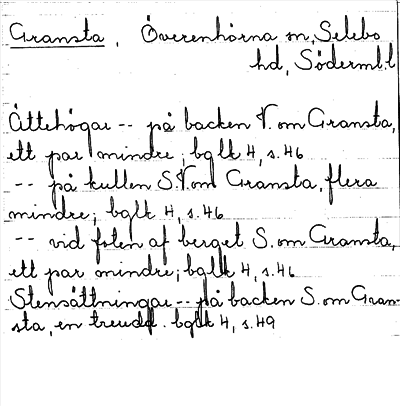 Gransta, Överenhörna sn, Selebo
hd, Söderml.l
Ättehögar -- på backen V. om Gransta,
ett par mindre; bglk 4, s.46
-- på kullen S.V. om Gransta, flera
mindre; bglk 4, s.46
-- vid foten af berget S. om Gransta,
ett par mindre; bglk 4, s.46
Stensättningar -- på backen S. om Gran-
sta, en treudd. bglk 4, s.49